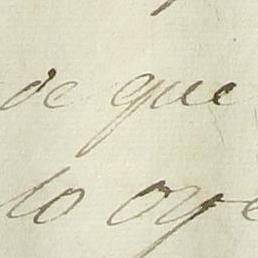 de que
lo oye